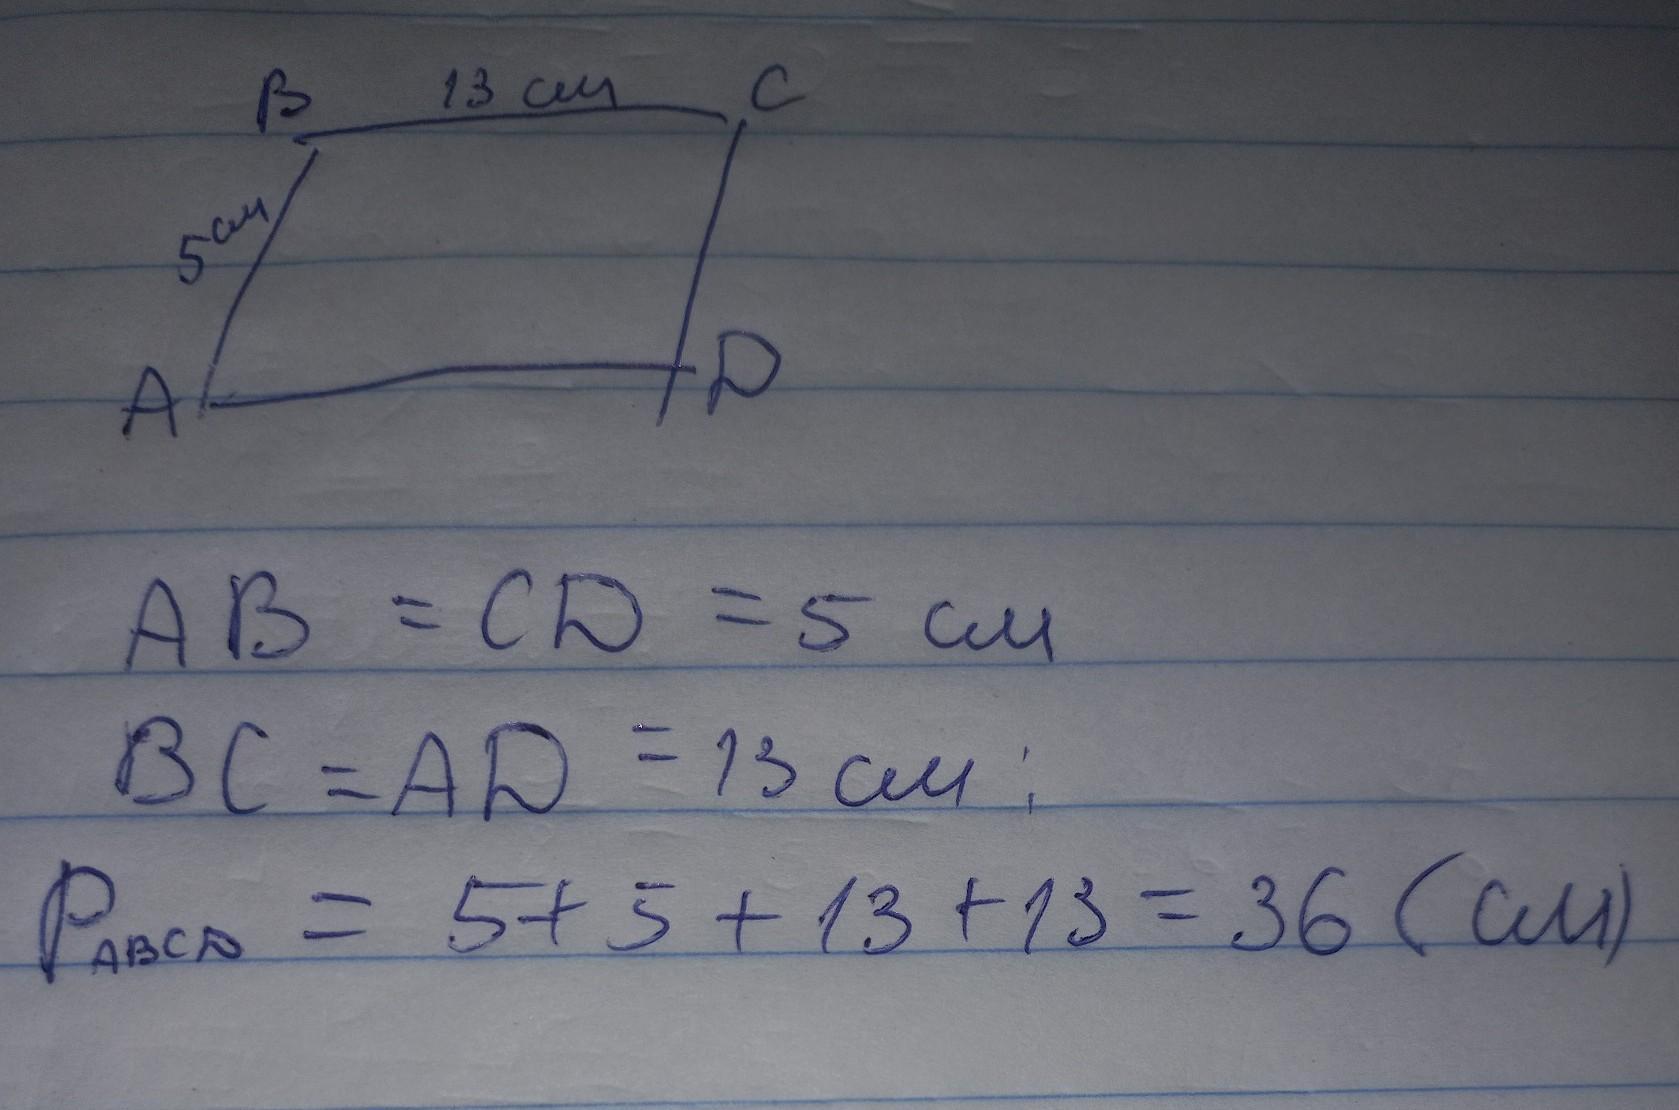 B 13 см C
5 см
A D
AB = CD = 5 см
BC = AD = 13 см ;
PABCD = 5 + 5 + 13 + 13 = 36 (см)